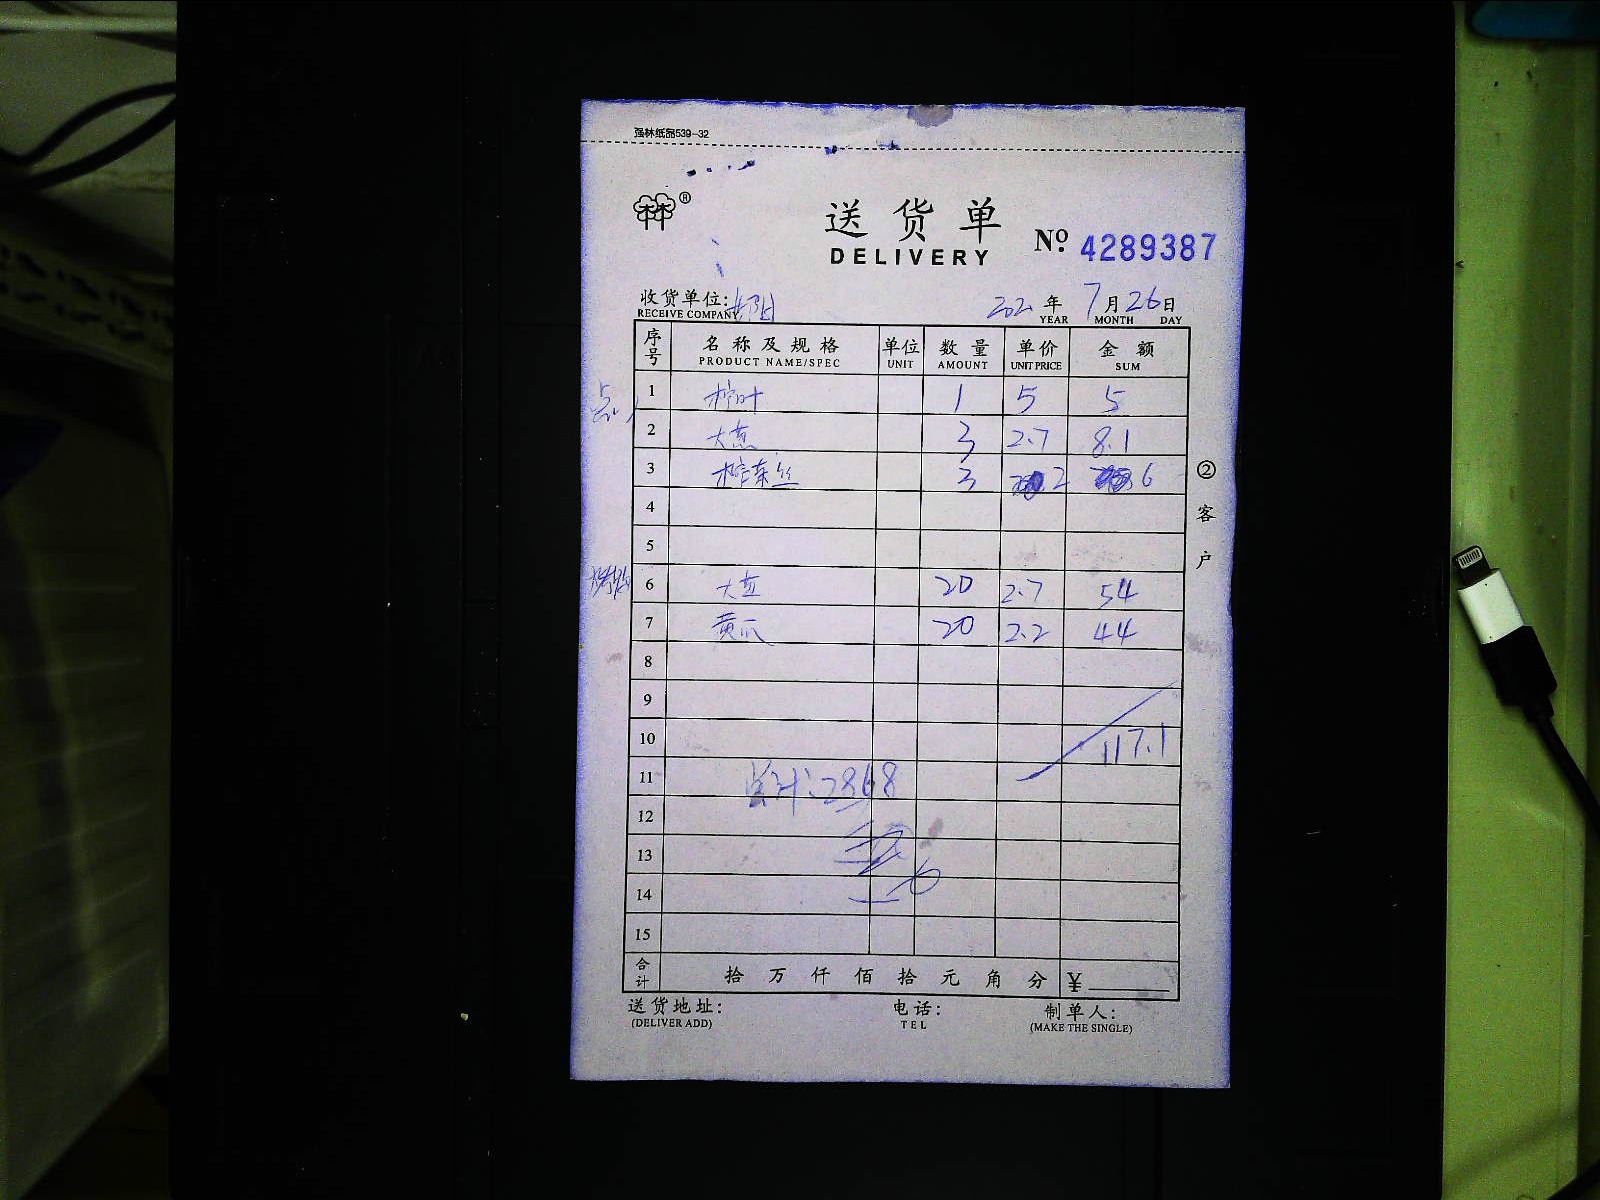 强林纸品539-32
林®
送货单
DELIVERY
Nº 4289387
收货单位:
RECEIVE COMPANY
2021年7月26日
YEAR MONTH DAY
序号 名称及规格 单位 数量 单价 金额
PRODUCT NAME/SPEC UNIT AMOUNT UNIT PRICE SUM
1 柠叶 1 5 5
2 大葱 3 2.7 8.1
3 榨菜丝 3 2 6
4
5
6 大 20 2.7 54
7 黄瓜 20 2.2 44
8
9
10 117.1
11 总计:2868
12
13
14
15
合计 拾 万 仟 佰 拾 元 角 分 ¥
送货地址: 电话: 制单人:
(DELIVER ADD) TEL (MAKE THE SINGLE)
②客户